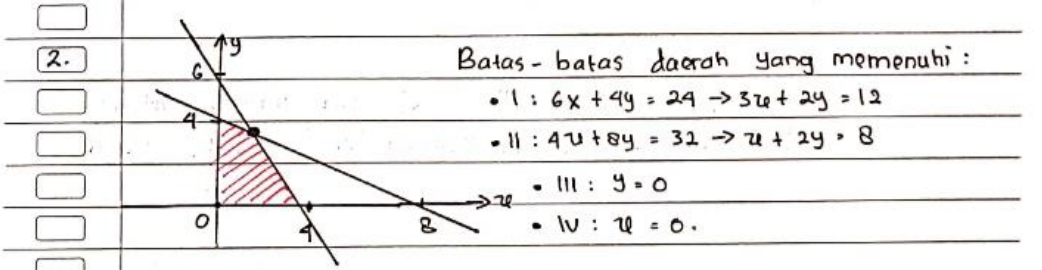 2.
Batas-batas daerah yang memenuhi :
• I : 6x + 4y = 24 → 3x + 2y = 12
• II : 4x + 8y = 32 → x + 2y = 8
• III : y = 0
• IV : x = 0.
y
6
4
0
4
8
x